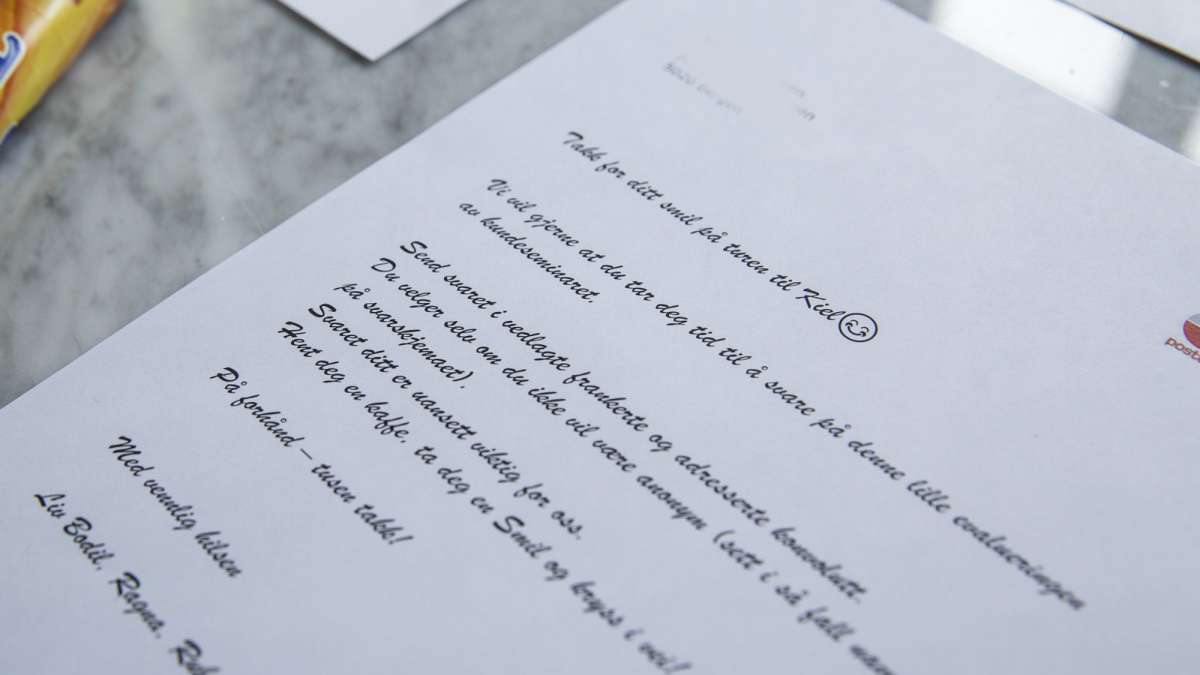 Takk for ditt smil på turen til Kiel
Vi vil gjerne at du tar deg tid til å svare på denne lille evalueringen
av kundeseminaret.
Send svaret i vedlagte frankerte og adresserte konvolutt.
Du velger selv om du ikke vil være anonym (sett i så fall
på svarskjemaet).
Svaret ditt er uansett viktig for oss.
Hent deg en kaffe, ta deg en Smil og kryss i vei!
På forhånd – tusen takk!
Med vennlig hilsen
Liv Bodil, Ragna,